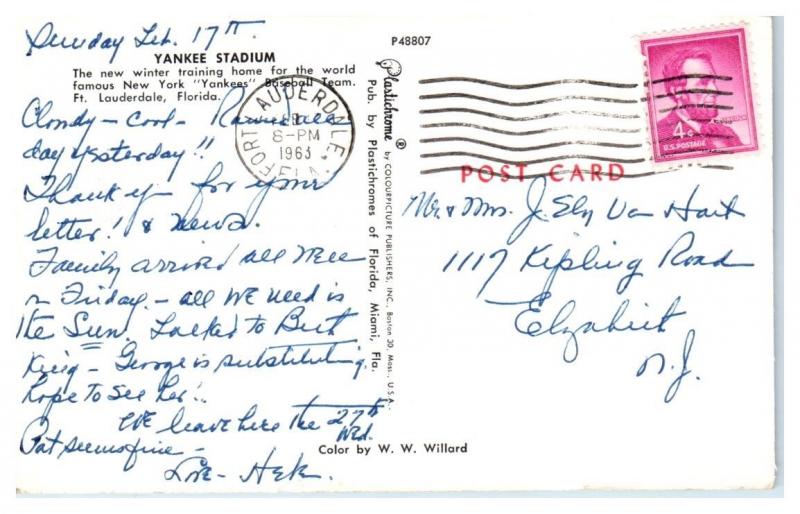 Sunday Feb. 17th.
YANKEE STADIUM
The new winter training home for the world
famous New York "Yankees" Baseball Team.
Ft. Lauderdale, Florida.
Cloudy - cool - Rained all
day yesterday!!
Thank you for your
letter! & news.
Family arrived all well
on Friday. - all we need is
the Sun. Talked to Bert
King - George is substituting.
hope to see her!.
We leave here the 27th
Wed.
Pat seems fine -
Love -
P48807
Plastichrome ® by COLOURPICTURE PUBLISHERS, INC., Boston 30, Mass., U.S.A.
Pub. by Plastichromes of Florida, Miami, Fla.
Color by W. W. Willard
FORT LAUDERDALE
8-PM
1963
FLA.
4¢
U.S. POSTAGE
POST CARD
Mr. & Mrs. J. Ely Van Hart
1117 Kipling Road
Elizabeth
N.J.